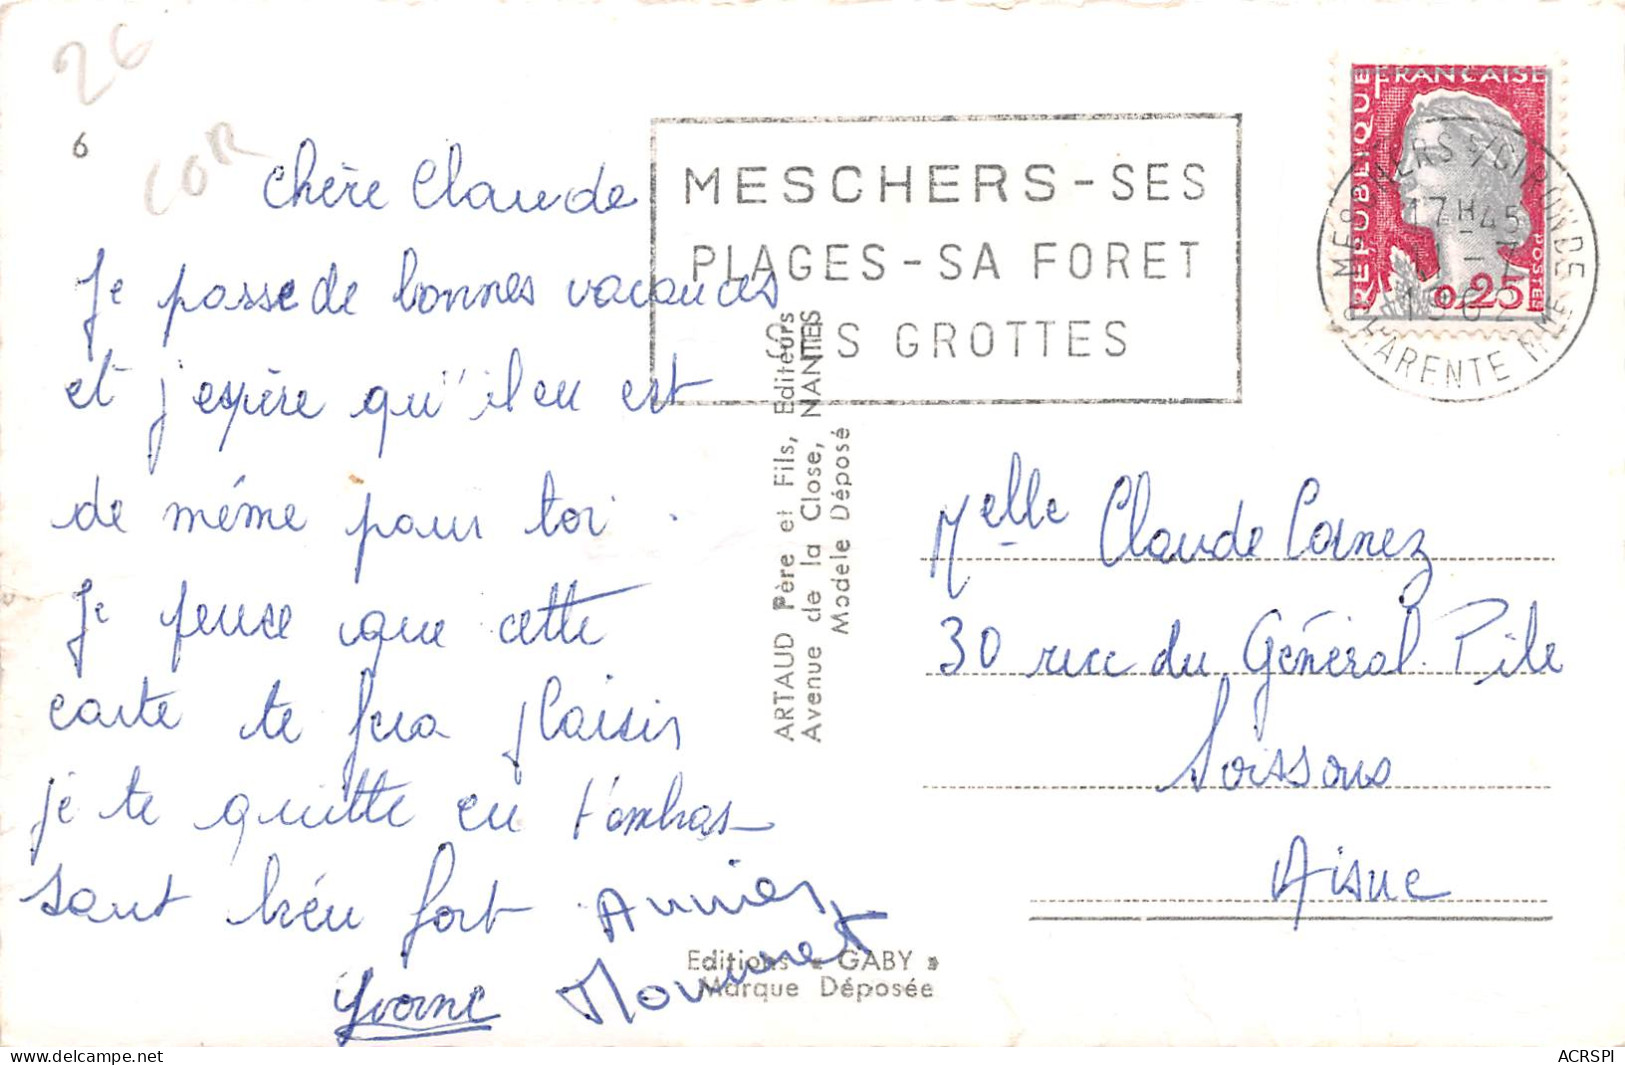 26
COR
6
Chère Claude
Je passe de bonnes vacances
et j'espère qu'il en est
de même pour toi.
Je pense que cette
carte te fera plaisir
je te quitte en t'embras-
sant bien fort
Yvonne
MESCHERS - SES
PLAGES - SA FORET
SES GROTTES
ARTAUD Père et Fils, Editeurs
Avenue de la Close, NANTES
Modele Déposé
Editions « GABY »
Marque Déposée
REPUBLIQUE FRANÇAISE
0,25
POSTES
MESCHERS S/GIRONDE
17H45
CHARENTE MME
Melle Claude Carnez
30 rue du Général Pile
Soissons
Aisne
ACRSPI